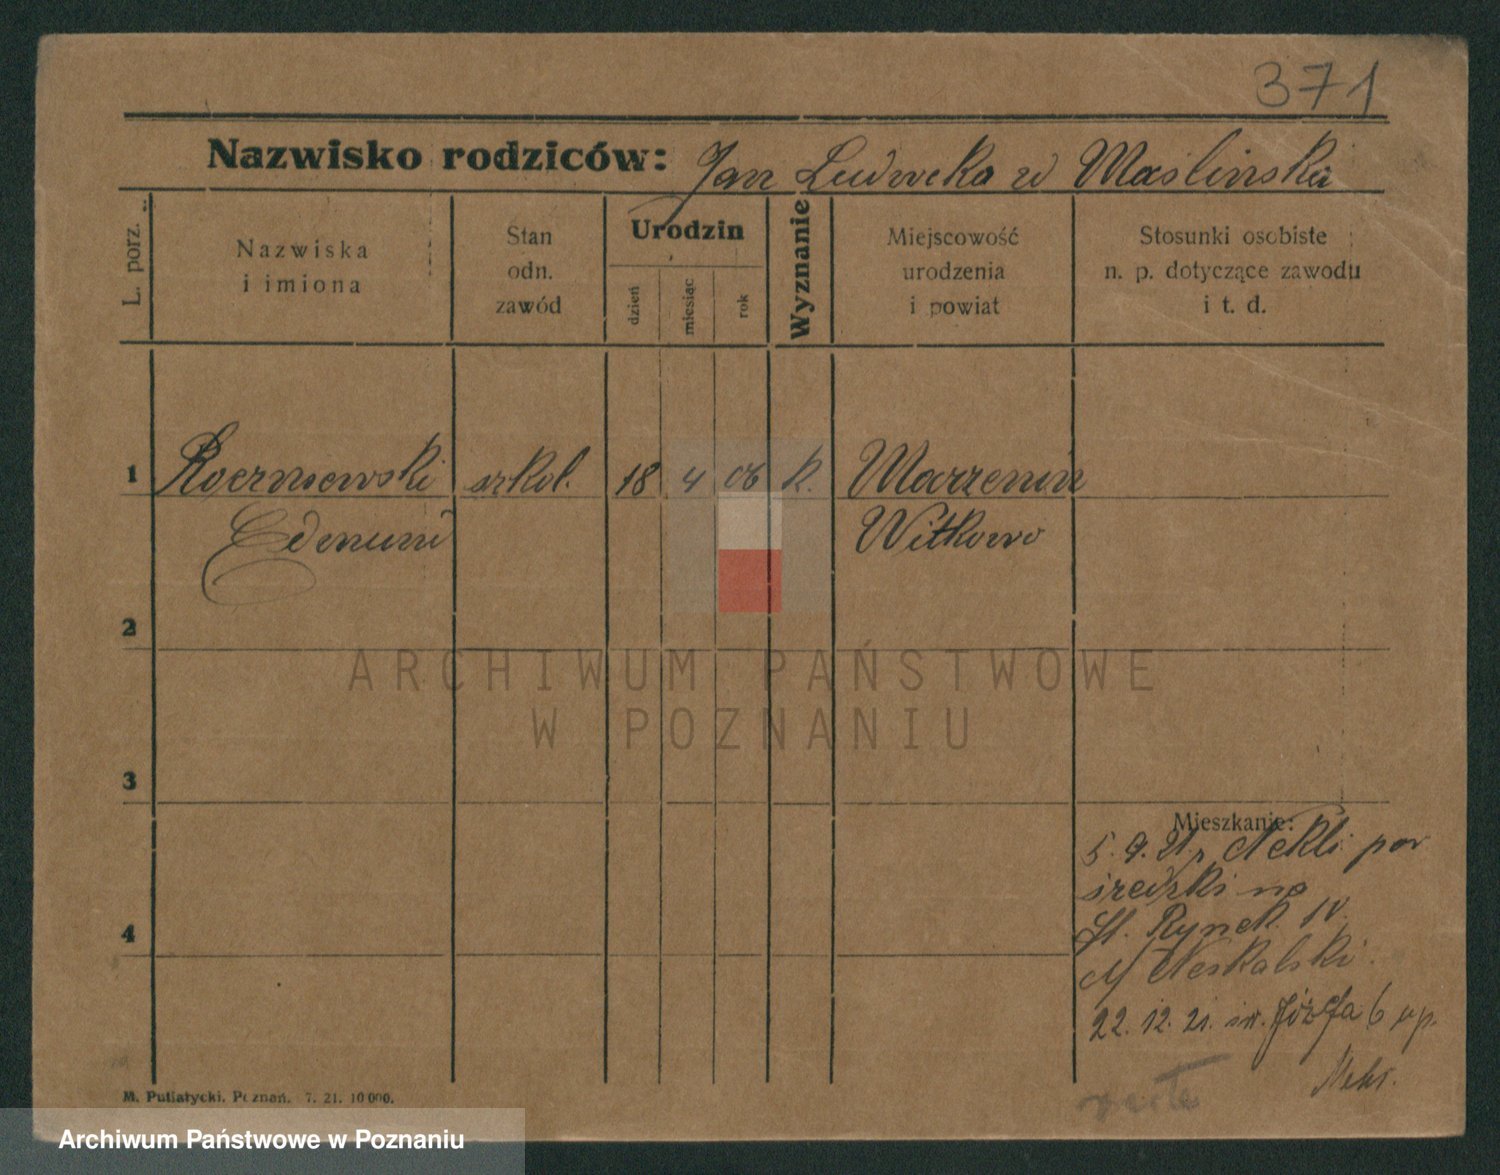 371
Nazwisko rodziców: Jan Ludwika zd Maślińska
L. porz.
Nazwiska
i imiona
Stan
odn.
zawód
Urodzin
dzień
miesiąc
rok
Wyznanie
Miejscowość
urodzenia
i powiat
Stosunki osobiste
n. p. dotyczące zawodu
i t. d.
1 szkol. 18 4 06 k. Marzenin
Edmund Witkowo
2
3
Mieszkanie:
5. 9. 21. z Nekli pow
średzki na
St. Rynek
4
22. 12. 21. św. Józefa 6
M. Putiatycki, Poznań. 7. 21. 10 000.
ARCHIWUM PAŃSTWOWE
W POZNANIU
Archiwum Państwowe w Poznaniu